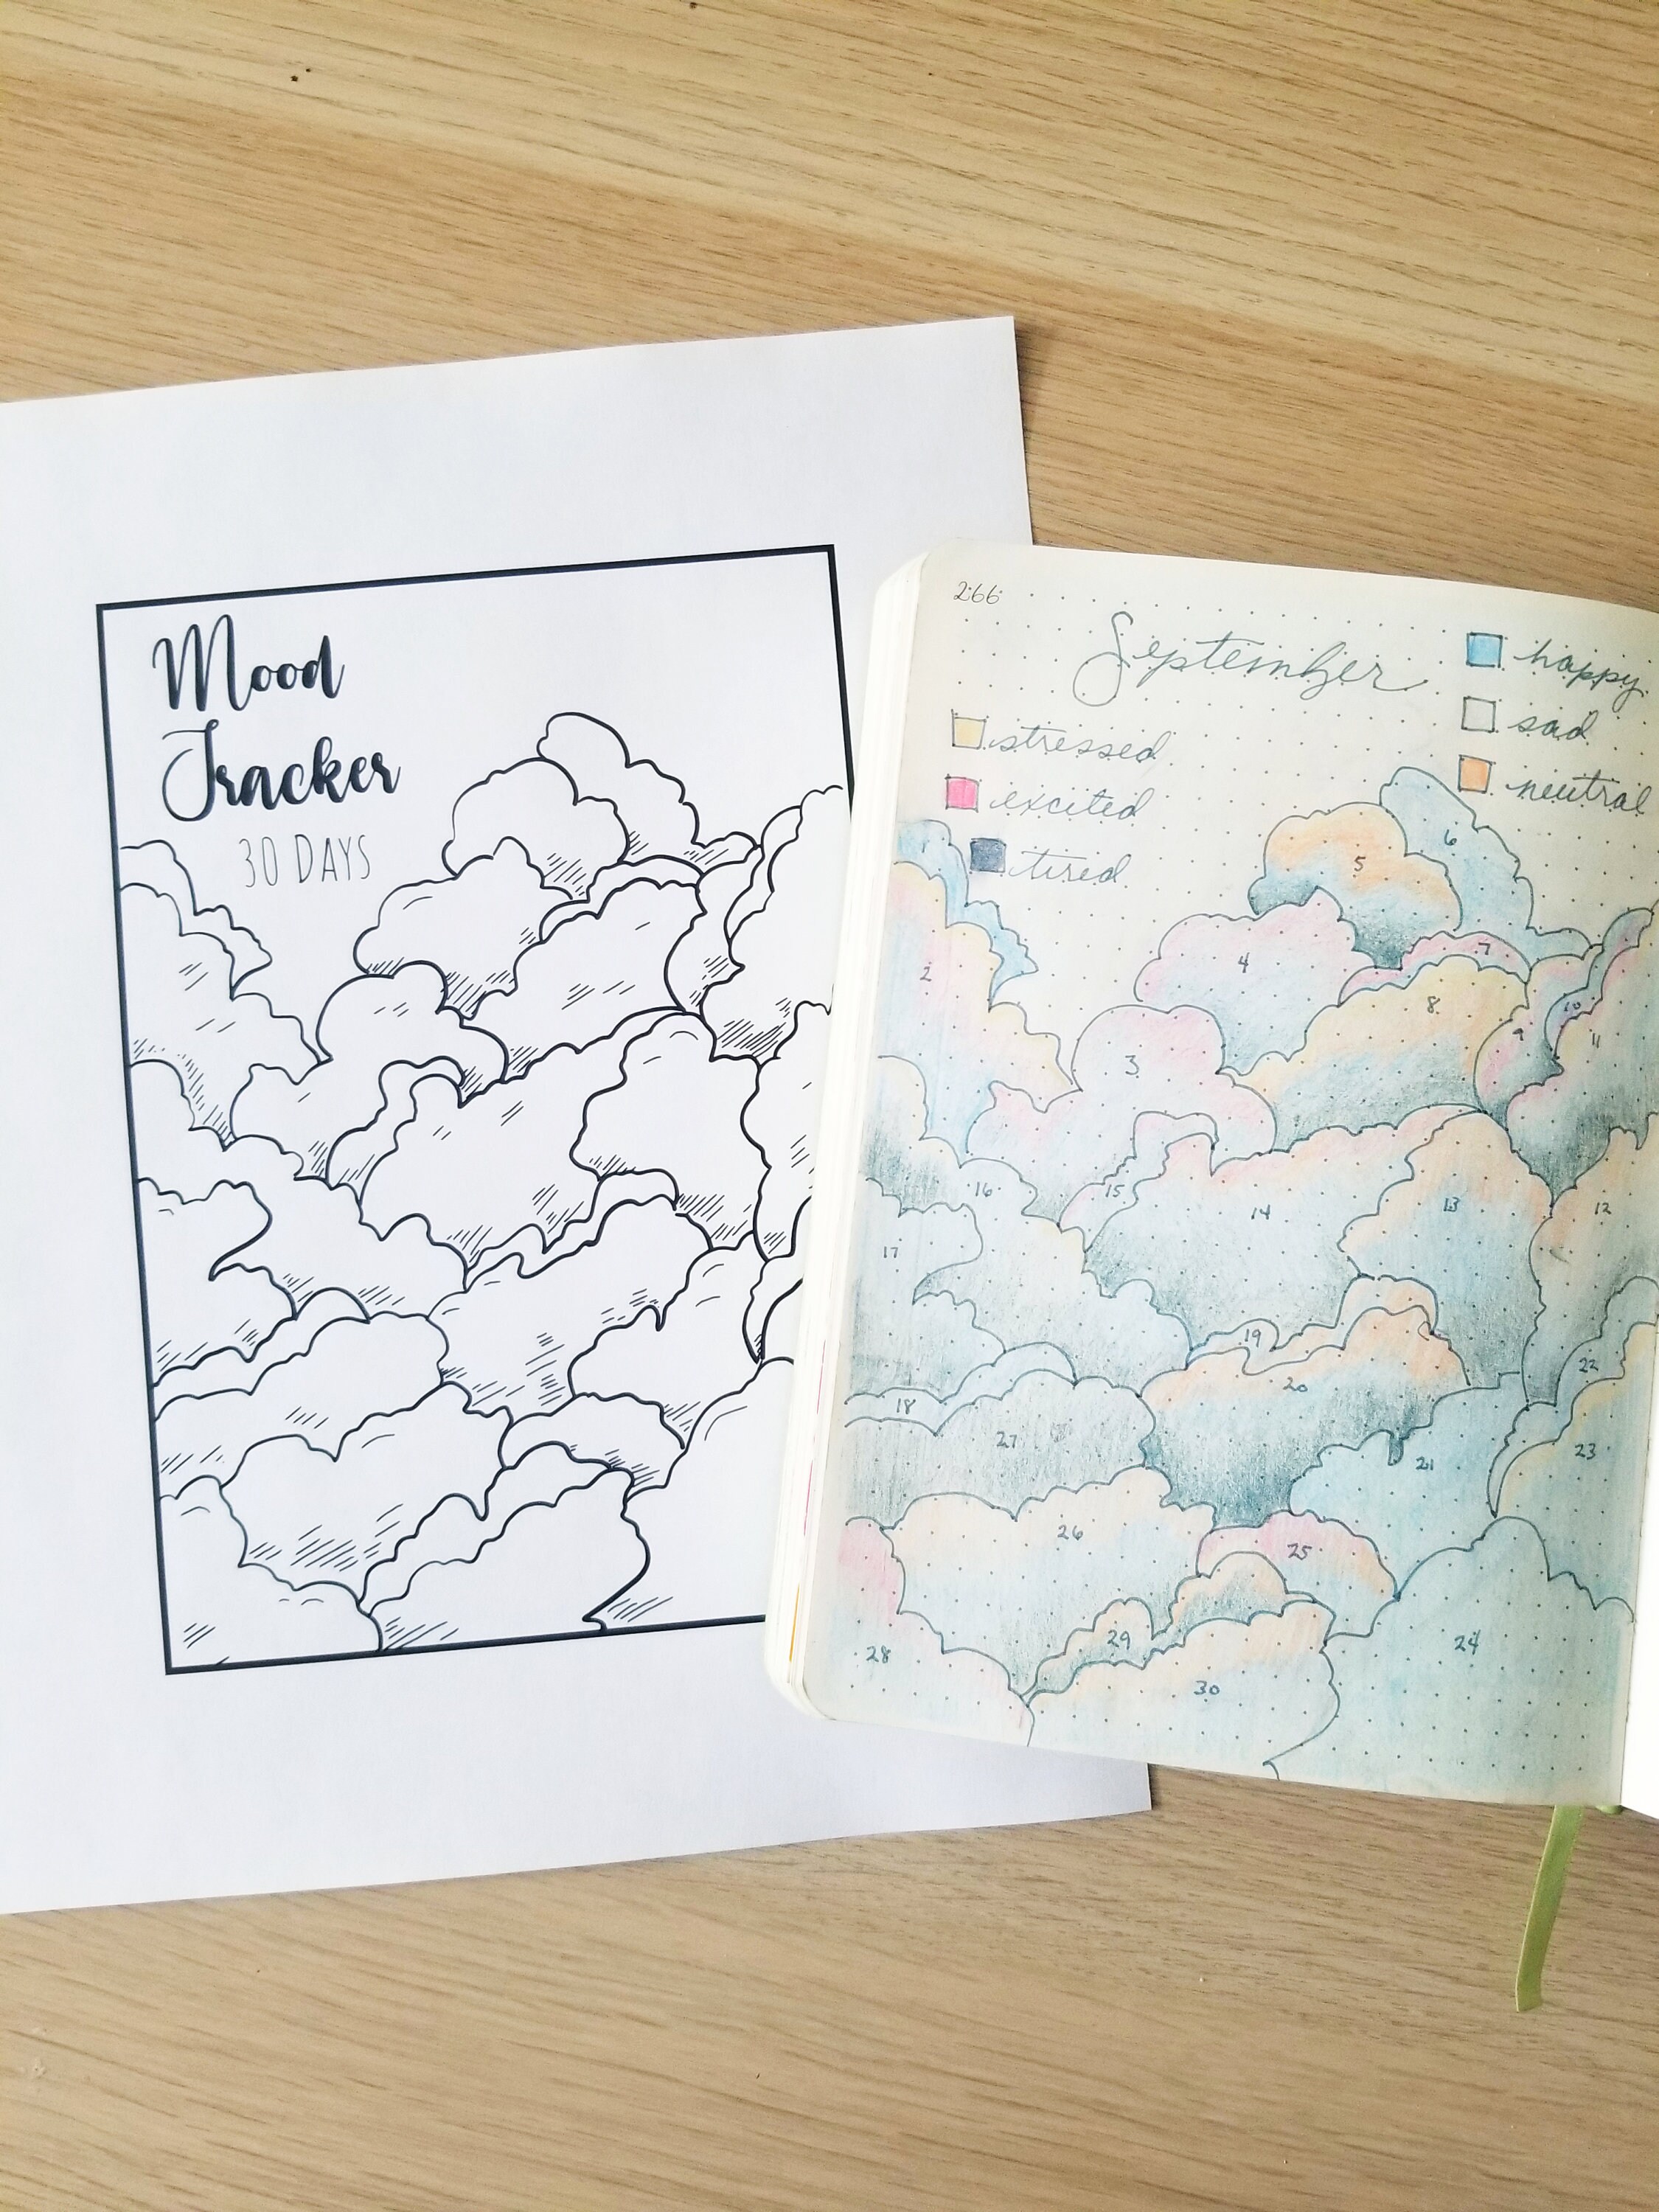 Mood
Tracker
30 DAYS
266
September
happy
sad
neutral
stressed
excited
tired
1
2
3
4
5
6
7
8
9
10
11
12
13
14
15
16
17
18
19
20
21
22
23
24
25
26
27
28
29
30